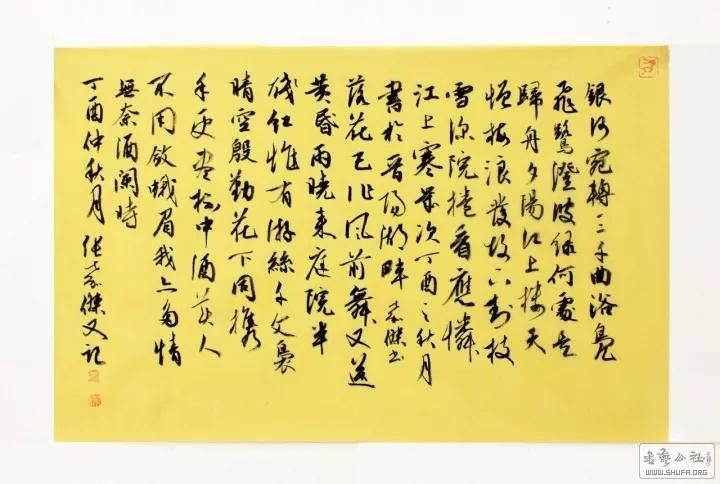 銀河宛轉三千曲浴鳧
飛鷺澄波綠何處是
歸舟夕陽江上樓天
憎梅浪發故下封枝
雪深院捲看應憐
江上寒 歲次丁酉之秋月
書於晋陽湖畔 嘉傑书
落花已作風前舞又送
黄昏雨曉來庭院半
殘红惟有游絲千丈裊
晴空殷勤花下同携
手更盡杯中酒美人
不用斂蛾眉我亦多情
無奈酒闌時
丁酉仲秋月 張嘉傑又记
書藝公社
WWW.SHUFA.ORG